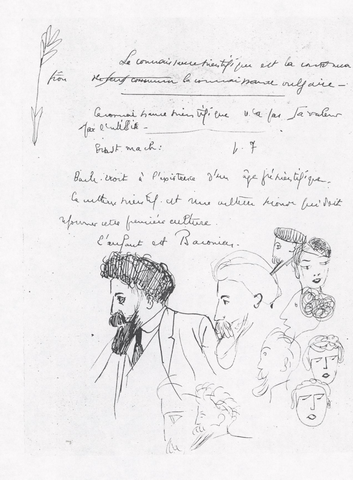 La connaissance scientifique est la continua
tion de la connaissance vulgaire —
Connaissance scientifique n'a pas sa valeur
par l'utilité.
Ernst Mach : p. 7
Bach. croit à l'existence d'un âge préscientifique.
La culture scientif. est une culture seconde qui doit
cette première culture.
L'enfant est Baconien.